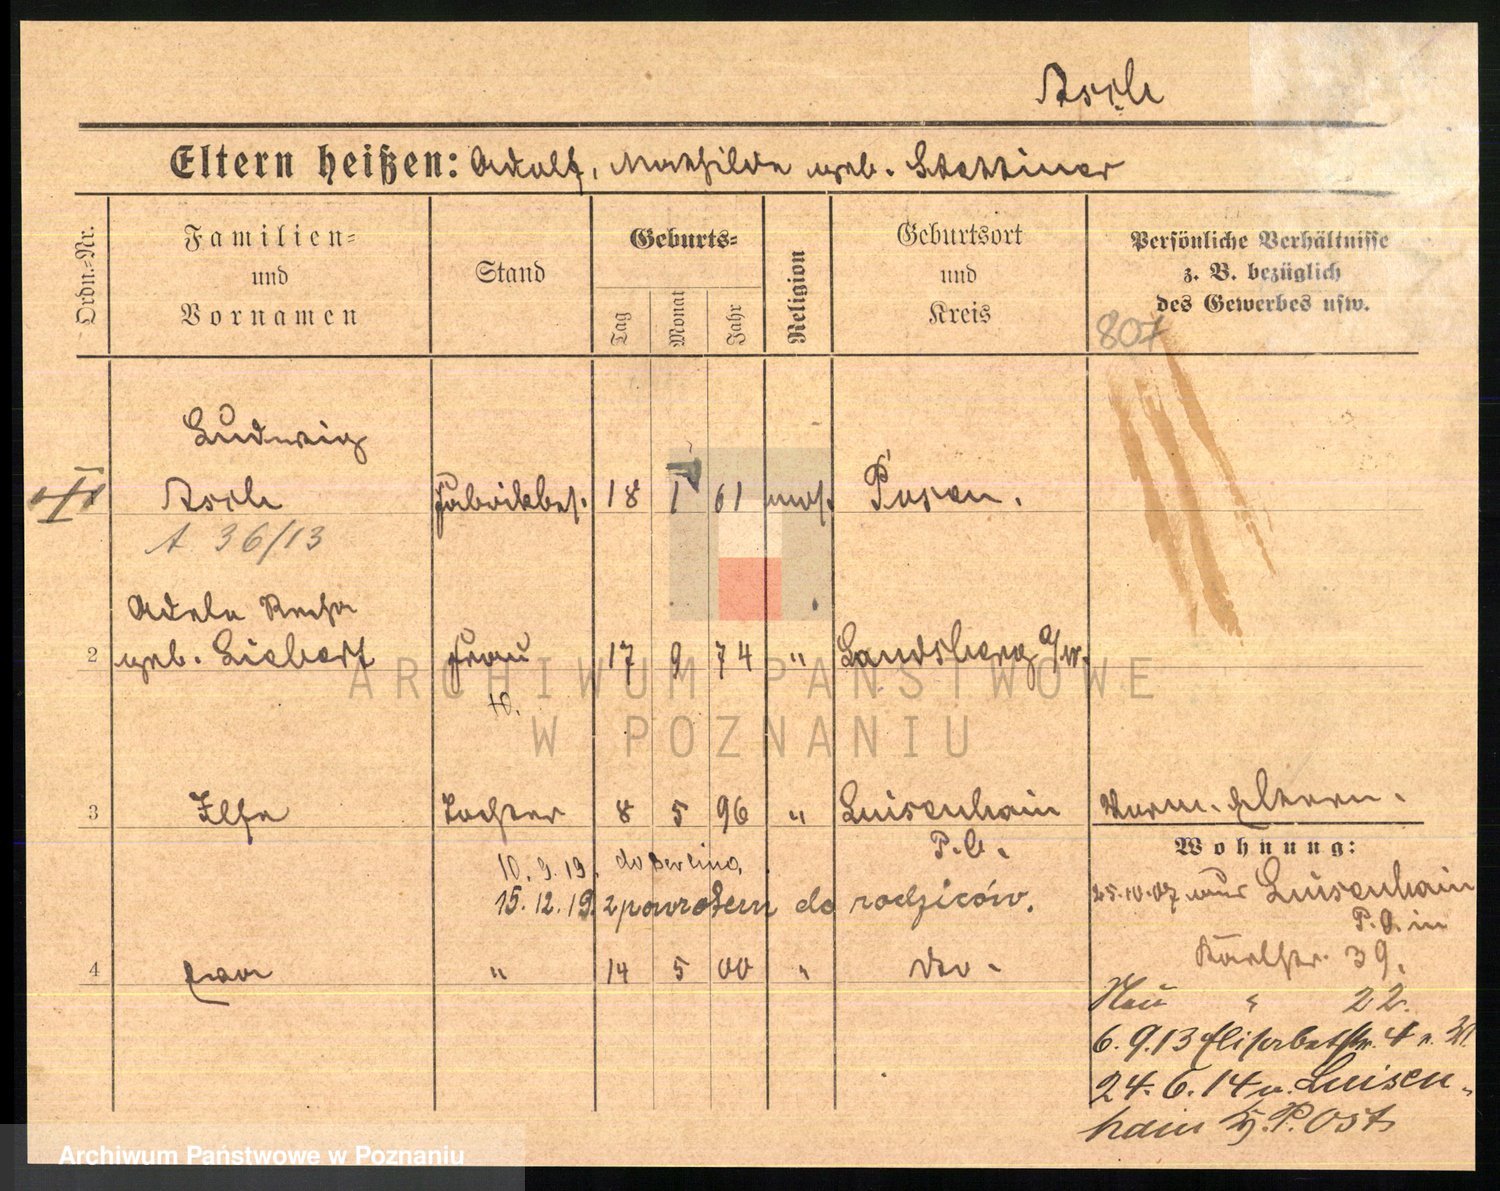 Asch
Eltern heißen: Adolf, Mathilde geb. Stettiner
Ordn.-Nr.
Familien-
und
Vornamen
Stand
Geburts-
Tag
Monat
Jahr
Religion
Geburtsort
und
Kreis
Persönliche Verhältnisse
z. B. bezüglich
des Gewerbes usw.
807
Ludwig
Asch Fabrikbes. 18 1 61 mos. Posen.
A 36/13
Adele Recha
2 geb. Liebert Frau 17 9 74 " Landsberg a/W.
3 Ilse Tochter 8 5 96 " Luisenhain Verm. Eltern.
P. O.
Wohnung:
10.9.19. do Berlina.
15.12.19. z powrotem do rodziców.
25.10.07 aus Luisenhain
P. O. in
4 Eva " 14 5 00 " dto - Karlstr. 39.
Neu " 22.
6.9.13 Elisabethstr. 4
24.6.14 n. Luisen-
hain K. P. Ost
ARCHIWUM PAŃSTWOWE
W POZNANIU
Archiwum Państwowe w Poznaniu